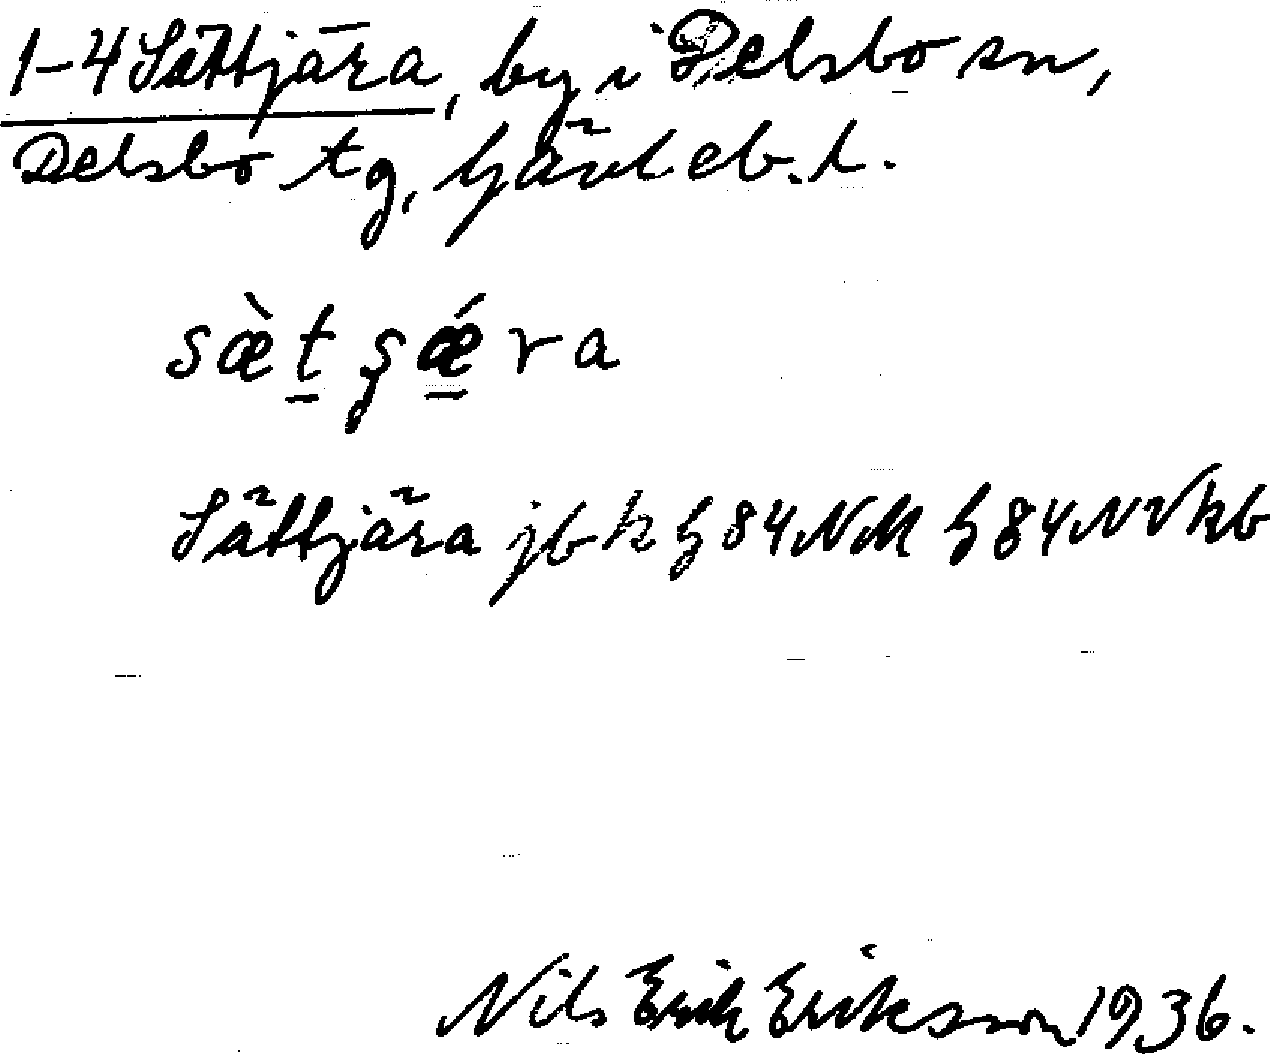 1-4 Sättjära, by i Delsbo sn,
Delsbo tg, Gävleb. l.
sæ̀t̠ʂǽ̠ra
Sättjära jb k h 84 NM h 84 NV kb
Nils Erik Eriksson 1936.